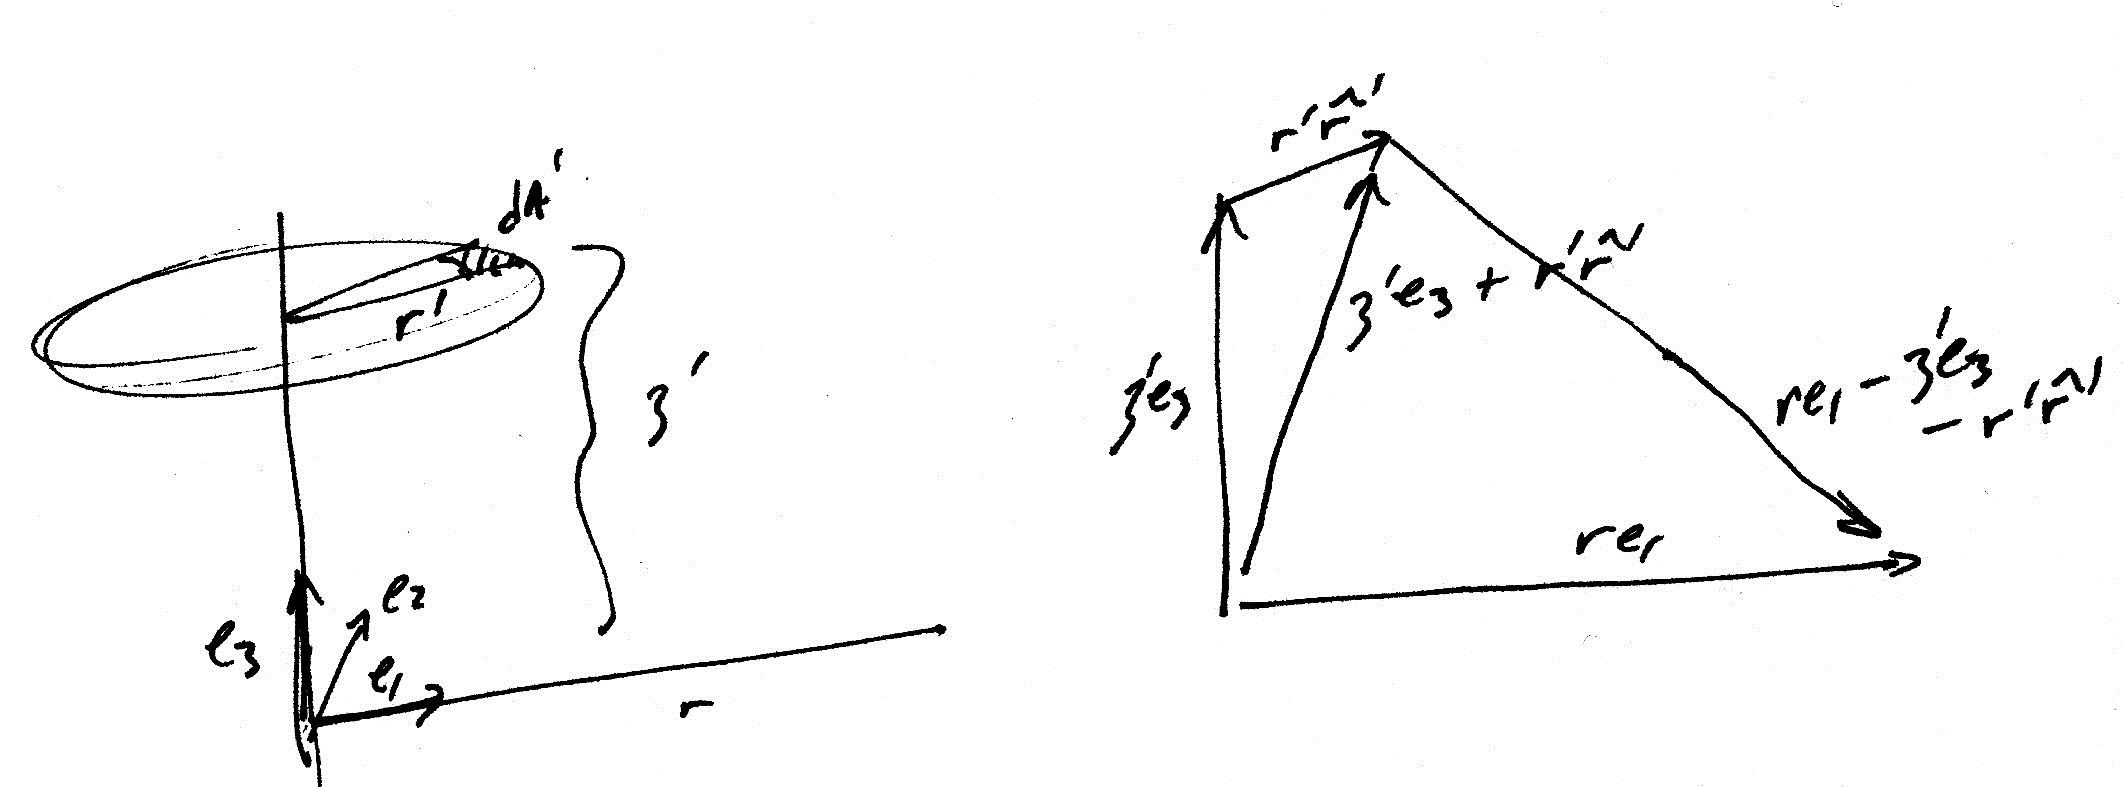 dA'
r'
z'
e₃
e₂
e₁
r
r'r̂'
z'e₃
z'e₃ + r'r̂'
re₁ - z'e₃
- r'r̂'
re₁